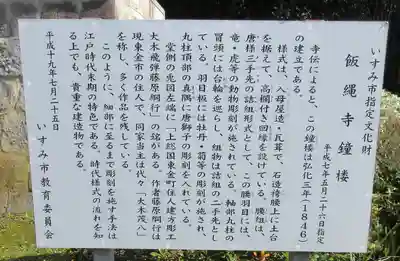 いすみ市指定文化財
平成七年五月二十六日指定
飯縄寺鐘楼
寺伝によると、この鐘楼は弘化三年(1846)
の建立である。
様式は、入母屋造・瓦葺で、石造榜腰上に土台
を据えて、高欄付き回縁を設けている。腰組は、
唐様三手先の詰組形式として、この腰羽目には、
竜・虎等の動物彫刻が施されている。軸部丸柱の
冒頭には台輪を巡らし、組物は詰組の二手先とし
ている。羽目板には牡丹・菊等の彫刻が施され、
丸柱頂部の真隅に唐獅子の彫刻を入れている。
堂側の兎国左端に「上総国東金町住人建方彫工
大木飛弾藤原綱行」の銘がある。作者藤原綱行は
現東金市の住人で、同家当主は代々「大木茂八」
を称し、多く作品を残している。
このように、細部に至るまで彫刻を施す手法は
江戸時代末期の特色である。時代様式の流れを知
る上でも、貴重な建造物である。
平成十九年七月二十五日
いすみ市教育委員会